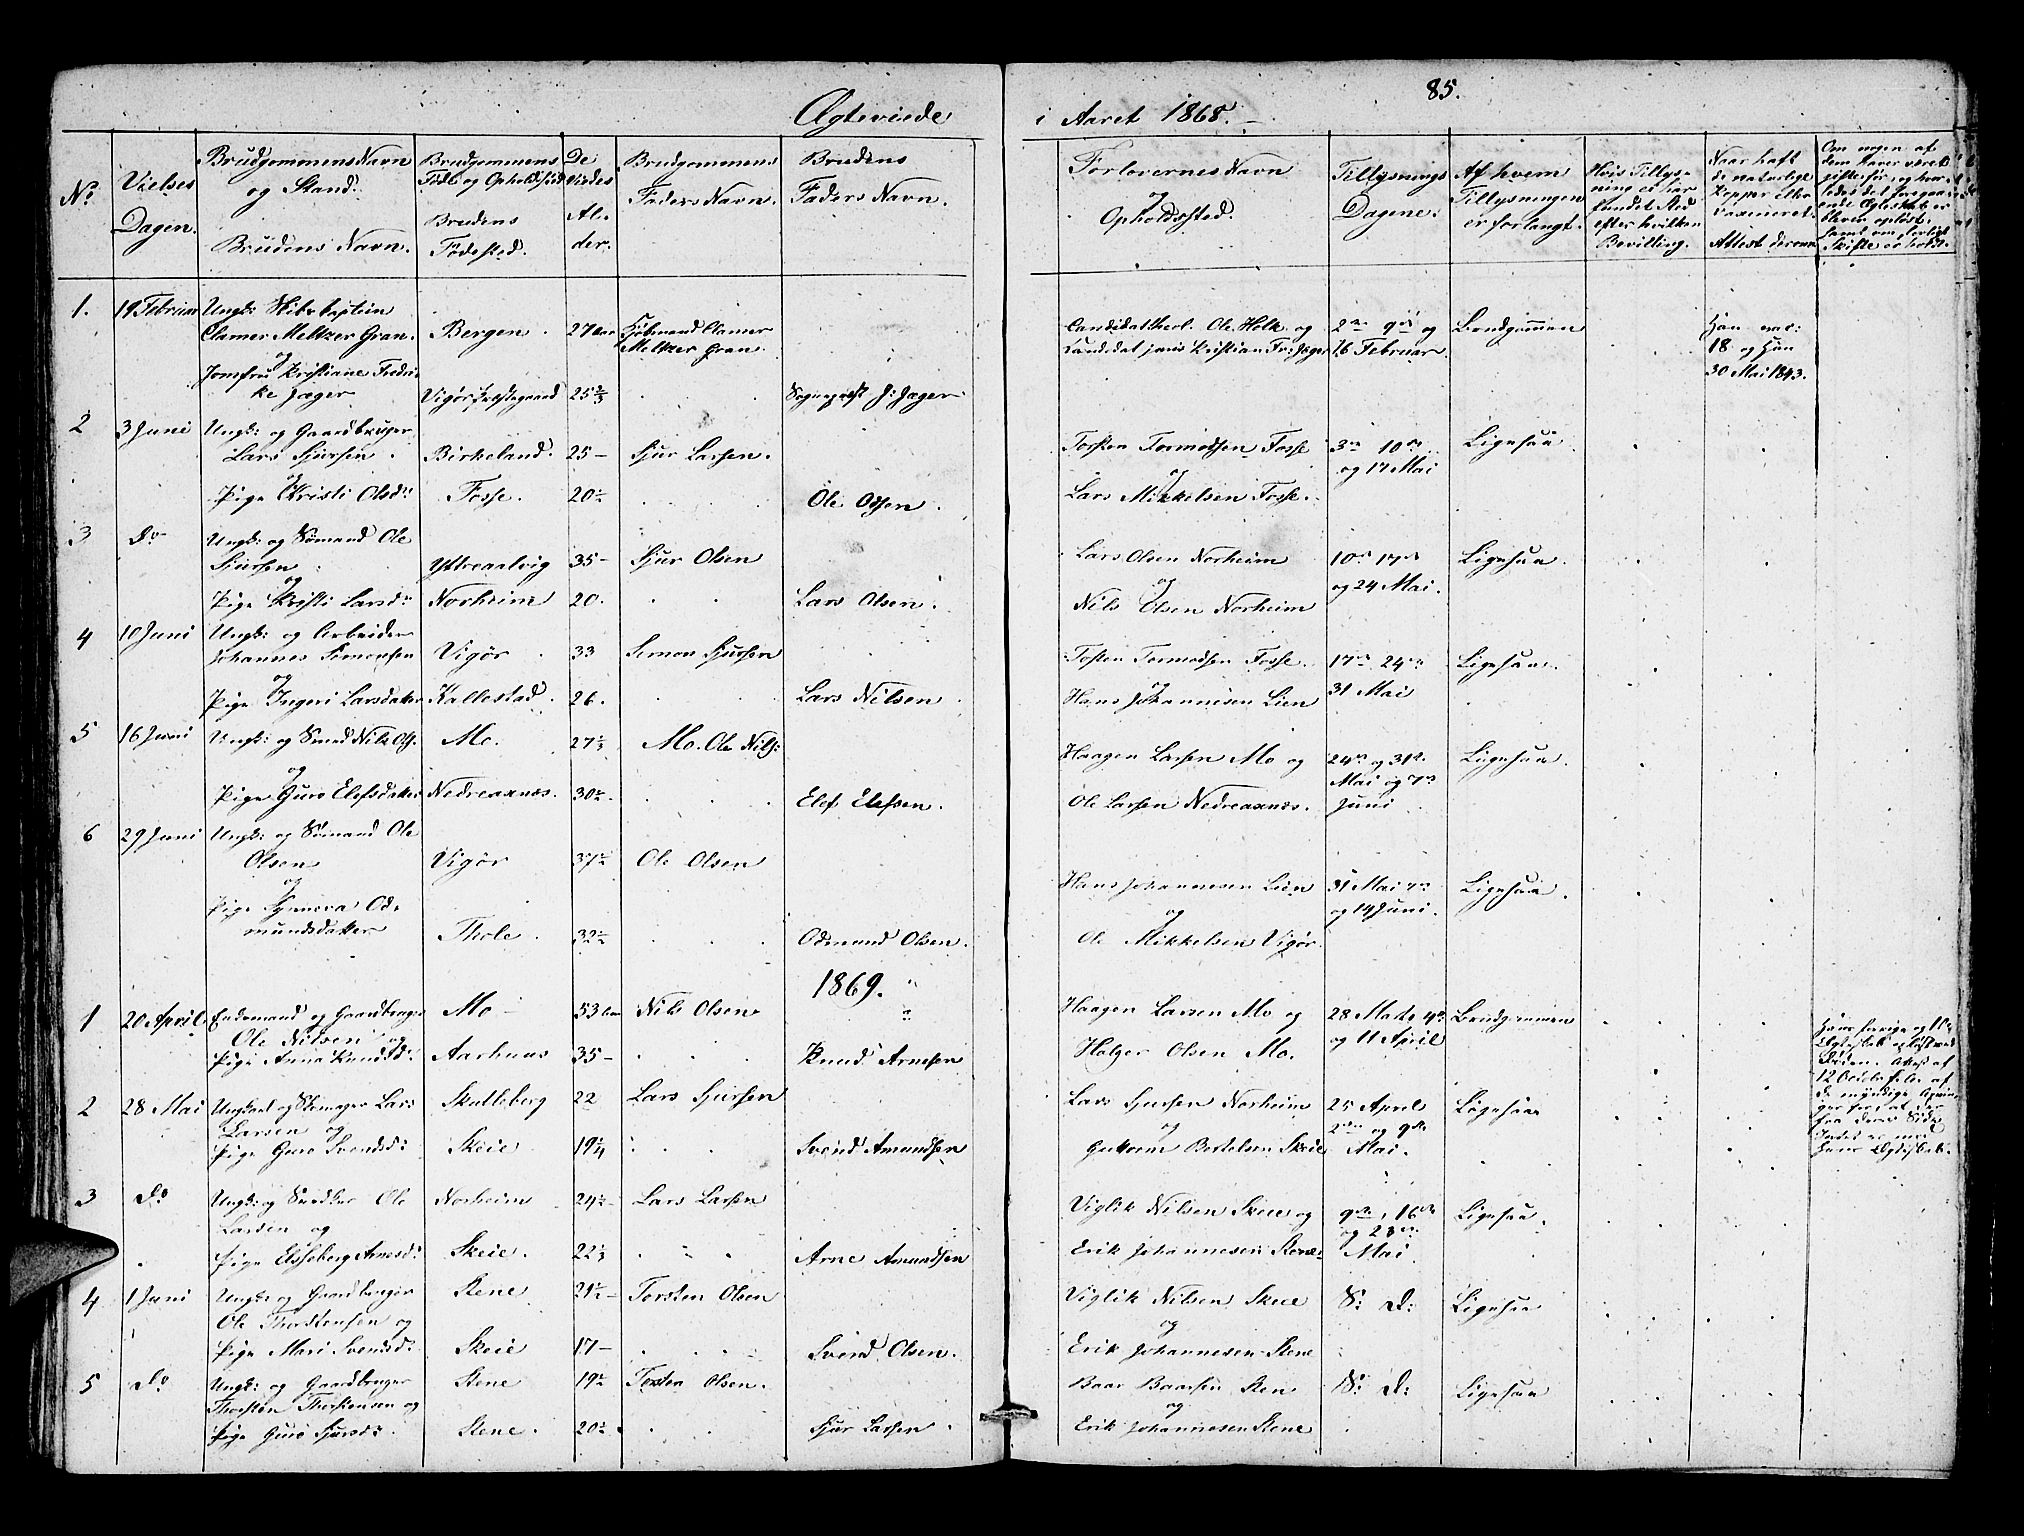 85.
Ægteviede i Aaret 1868.
No
Vielses Dagen.
Brudgommens Navn og Stand.
Brudens Navn.
Brudgommens Føde og Opholdssted
Brudens Fødested.
De Viedes Alder.
Brudgommens Faders Navn.
Brudens Faders Navn.
Forlovernes Navn og Opholdssted.
Tillysnings Dagene.
Af hvem Tillysningen er forlangt.
Hvis Tillysning ei har fundet Sted efter hvilken Bevilling.
Naar haft de naturlige Kopper eller vaxineret. Attest derom
Om nogen af dem haver været gift før, og hvorledes det foregaaende Ægteskab er bleven opløst, samt om lovligt Skifte er holdt.
1. 19 Februar Ungk: Skibskaptein
Clamer Meltzer Gran. Bergen. 27 Aar Kjøbmand Clamer Meltzer Gran. Candidat theol. Ole Holk og 2den 9de og Brudgommen Han vac:
og Candidat juris Kristian Fr: Jæger 16 Februar. 18 og Hun
Jomfru Kristiane Fredrikke Jæger Vigør Præstegaard 25 2/3 Sognepræst J: Jæger. 30 Mai 1843.
2 3 Juni Ungk: og Gaardbruger
Lars Sjursen. Birkeland. 25- Sjur Larsen. Torsten Tormodsen Fosse 3die 10de Ligesaa
og og og 17 Mai
Pige Kristi Olsd: Fosse. 20 1/2 Ole Olsen. Lars Mikkelsen Fosse.
3 Do Ungk: og Sømand Ole
Sjursen Yttreaalvig 35- Sjur Olsen Lars Olsen Norheim 10de 17de Ligesaa.
og og og 24 Mai.
Pige Kristi Larsd: Norheim 20. Lars Olsen. Nils Olsen Norheim
4 10 Juni Ungk: og Arbeider
Johannes Simonsen Vigør 33 Simon Sjursen Tosten Tormodsen Fosse. 17de 24de Ligesaa.
og og 31 Mai
Pige Ingeri Larsdatter Kallestad. 26. Lars Nilsen Hans Johannesen Lien
5 16 Juni Ungk: og Smed Nils Ols. Mo. 27 1/3 Mo. Ole Nils: Haagen Larsen Mo og 24de og 31te Ligesaa.
og Mai og 7de
Pige Guro Elefsdatter Nedreaxnæs. 30 1/2 Elef Elefsen. Ole Larsen Nedreaxnæs. Juni
6 29 Juni Ungk: og Sømand Ole
Olsen Vigør 37 1/2 Ole Olsen Hans Johannesen Lien 31 Mai 7de Ligesaa.
og og og 14 Juni.
Pige Synneva Odmundsdatter Thole. 32 1/2 Odmund Olsen. Ole Mikkelsen Vigør.
1869.
1 20 April Enkemand og Gaardbruger Mo 53 Aar Nils Olsen Haagen Larsen Mo og 28 Marts 4de Brudgommen
Ole Nilsen og og 11 April
Pige Anna Knudsd: Aarhuus 35- Knud Arnesen Holger Olsen Mo.
2 28 Mai Ungkarl og Skomager Lars Skutleberg 22 Lars Sjursen Lars Sjursen Norheim 25 April Ligesaa
Larsen og og 2den og 9de
Pige Guro Svendsd: Skeie 19 1/4 Svend Amundsen Guttorm Bertelsen Skeie Mai.
3 Do Ungk: og Ole Norheim 24 1/2 Lars Larsen Viglik Nilsen Skeie og 9de, 16de Ligesaa.
Larsen og og 23de
Pige Elsseberg Arnesd: Skeie. 22 1/3 Arne Amundsen Erik Johannesen Stene. Mai
4 1 Juni Ungk: og Gaardbruger Stene 21 1/2 Torsten Olsen Viglik Nilsen Skeie S: D: Ligesaa
Ole Thorstensen og og
Pige Mari Svendsd: Skeie 17- Svend Olsen. Erik Johannesen Stene
5 Do Ungk: og Gaardbruger Stene 19 1/2 Tosten Olsen. Baar Baarsen Sten S: D: Ligesaa
Thorsten Thorstensen og og
Pige Guro Sjursd: Stene. 20 1/2 Sjur Larsen Erik Johannesen Stene